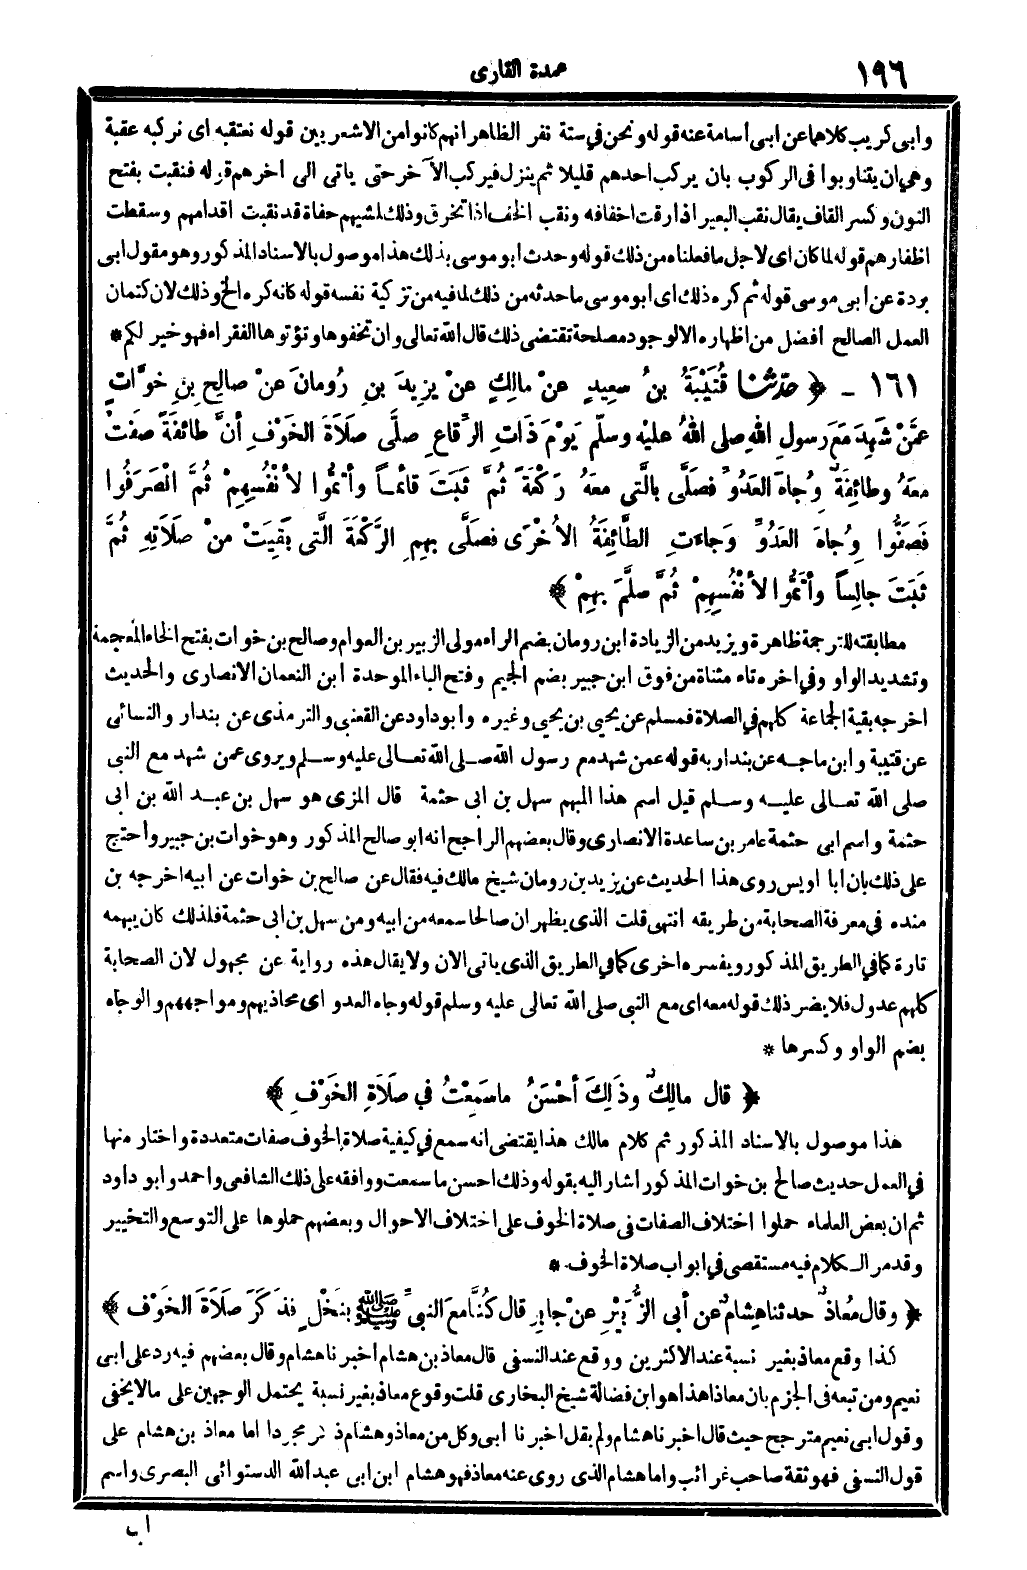 ١٩٦
عمدة القارى
وابى كريب كلاهما عن ابى أسامة عنه قوله ونحن في ستة نفر الظاهر انهم كانوا من الاشعريين قوله نعتقبه اى نركبه عقبة
وهي ان يتناوبوا فى الركوب بان يركب احدهم قليلا ثم ينزل فيركب الآخر حتى ياتى الى اخرهم قوله فنقبت بفتح
النون وكسر القاف يقال نقب البعير اذا رقت اخفافه ونقب الخف اذا تخرق وذلك لمشيهم حفاة قد نقبت اقدامهم وسقطت
اظفارهم قوله لما كان اى لاجل ما فعلناه من ذلك قوله وحدث ابو موسى بذلك هذا موصول بالاسناد المذكور وهو مقول ابى
بردة عن ابى موسى قوله ثم كره ذلك اى ابو موسى ما حدثه من ذلك لما فيه من تزكية نفسه قوله كانه كره الخ وذلك لان كتمان
العمل الصالح أفضل من اظهاره الا لوجود مصلحة تقتضى ذلك قال الله تعالى وان تخفوها وتؤتوها الفقراء فهو خير لكم *
١٦١ - ﴿ حَدَّثنا قُتَيْبَةُ بنُ سعيدٍ عنْ مالِكٍ عنْ يزِيدَ بنِ رُومانَ عنْ صالِحِ بنِ خوَّاتٍ
عمَّنْ شَهِدَ مَعَ رسولِ اللهِ صلى اللهُ عليْهِ وسلَّم يَوْمَ ذَاتِ الرِّقاعِ صلَّى صَلَاةَ الخَوْفِ أنَّ طائِفَةً صفَّتْ
معَهُ وطائِفَةٌ وُجاهَ العَدُوِّ فصَلَّى بالَّتي معَهُ رَكْعَةً ثُمَّ ثَبَتَ قائماً وأتَمُّوا لأنْفُسِهِمْ ثُمَّ انْصَرَفُوا
فَصَفُّوا وِجُاهَ العَدُوِّ وَجاءَتِ الطَّائِفَةُ الأُخْرَى فصَلَّى بهِمِ الرَّكْعَةَ الَّتى بَقِيَتْ منْ صلَاتِهِ ثُمَّ
ثَبَتَ جالِساً وأتَمُّوا لأنْفُسِهِمْ ثُمَّ سلَّمَ بهِمْ ﴾
مطابقته للترجمة ظاهرة ويزيد من الزيادة ابن رومان بضم الراء مولى الزبير بن العوام وصالح بن خوات بفتح الخاء المعجمة
وتشديد الواو وفي اخره تاء مثناة من فوق ابن جبير بضم الجيم وفتح الباء الموحدة ابن النعمان الانصارى والحديث
اخرجه بقية الجماعة كلهم في الصلاة فمسلم عن يحيى بن يحيى وغيره وابو داود عن القعنبى والترمذى عن بندار والنسائى
عن قتيبة وابن ماجه عن بندار به قوله عمن شهد مع رسول الله صلى الله تعالى عليه وسلم ويروى عمن شهد مع النبى
صلى الله تعالى عليه وسلم قيل اسم هذا المبهم سهل بن ابى حثمة قال المزى هو سهل بن عبد الله بن ابى
حثمة واسم ابى حثمة عامر بن ساعدة الانصارى وقال بعضهم الراجح انه ابو صالح المذكور وهو خوات بن جبير وأحتج
على ذلك بان أبا اويس روى هذا الحديث عن يزيد بن رومان شيخ مالك فيه فقال عن صالح بن خوات عن ابيه اخرجه بن
منده في معرفة الصحابة من طريقه انتهى قلت الذى يظهر ان صالحا سمعه من ابيه ومن سهل بن ابى حثمة فلذلك كان يبهمه
تارة كما في الطريق المذكور ويفسره اخرى كما في الطريق الذى ياتى الان ولا يقال هذه رواية عن مجهول لان الصحابة
كلهم عدول فلا يضر ذلك قوله معه اى مع النبى صلى الله تعالى عليه وسلم قوله وجاه العدو اى محاذيهم ومواجههم والوجاه
بضم الواو وكسرها *
﴿ قال مالِكٌ وذَلِكَ أحْسَنُ ماسَمِعْتُ في صلَاةِ الخَوْفِ ﴾
هذا موصول بالاسناد المذكور ثم كلام مالك هذا يقتضى انه سمع في كيفية صلاة الخوف صفات متعددة واختار منها
في العمل حديث صالح بن خوات المذكور اشار اليه بقوله وذلك احسن ما سمعت ووافقه على ذلك الشافعى واحمد وابو داود
ثم ان بعض العلماء حملوا اختلاف الصفات فى صلاة الخوف على اختلاف الاحوال وبعضهم حملوها على التوسع والتخيير
وقد مر الكلام فيه مستقصى في ابواب صلاة الخوف *
﴿ وقال مُعاذٌ حدثنا هِشامٌ عن أبى الزُّبَيْرِ عنْ جابِرٍ قال كُنَّا معَ النبىِّ ﷺ بنَخْلٍ فذَكَرَ صَلَاةَ الخَوْفِ ﴾
كذا وقع معاذ بغير نسبة عند الاكثرين ووقع عند النسفى قال معاذ بن هشام أخبرنا هشام وقال بعضهم فيه رد على ابى
نعيم ومن تبعه فى الجزم بان معاذا هذا هو ابن فضالة شيخ البخارى قلت وقوع معاذ بغير نسبة يحتمل الوجهين على ما لا يخفى
وقول ابى نعيم مترجح حيث قال اخبرنا هشام ولم يقل اخبرنا أبى وكل من معاذ وهشام ذكر مجردا اما معاذ بن هشام على
قول النسفى فهو ثقة صاحب غرائب واما هشام الذى روى عنه معاذ فهو هشام ابن ابى عبد الله الدستوائى البصرى واسم
اب